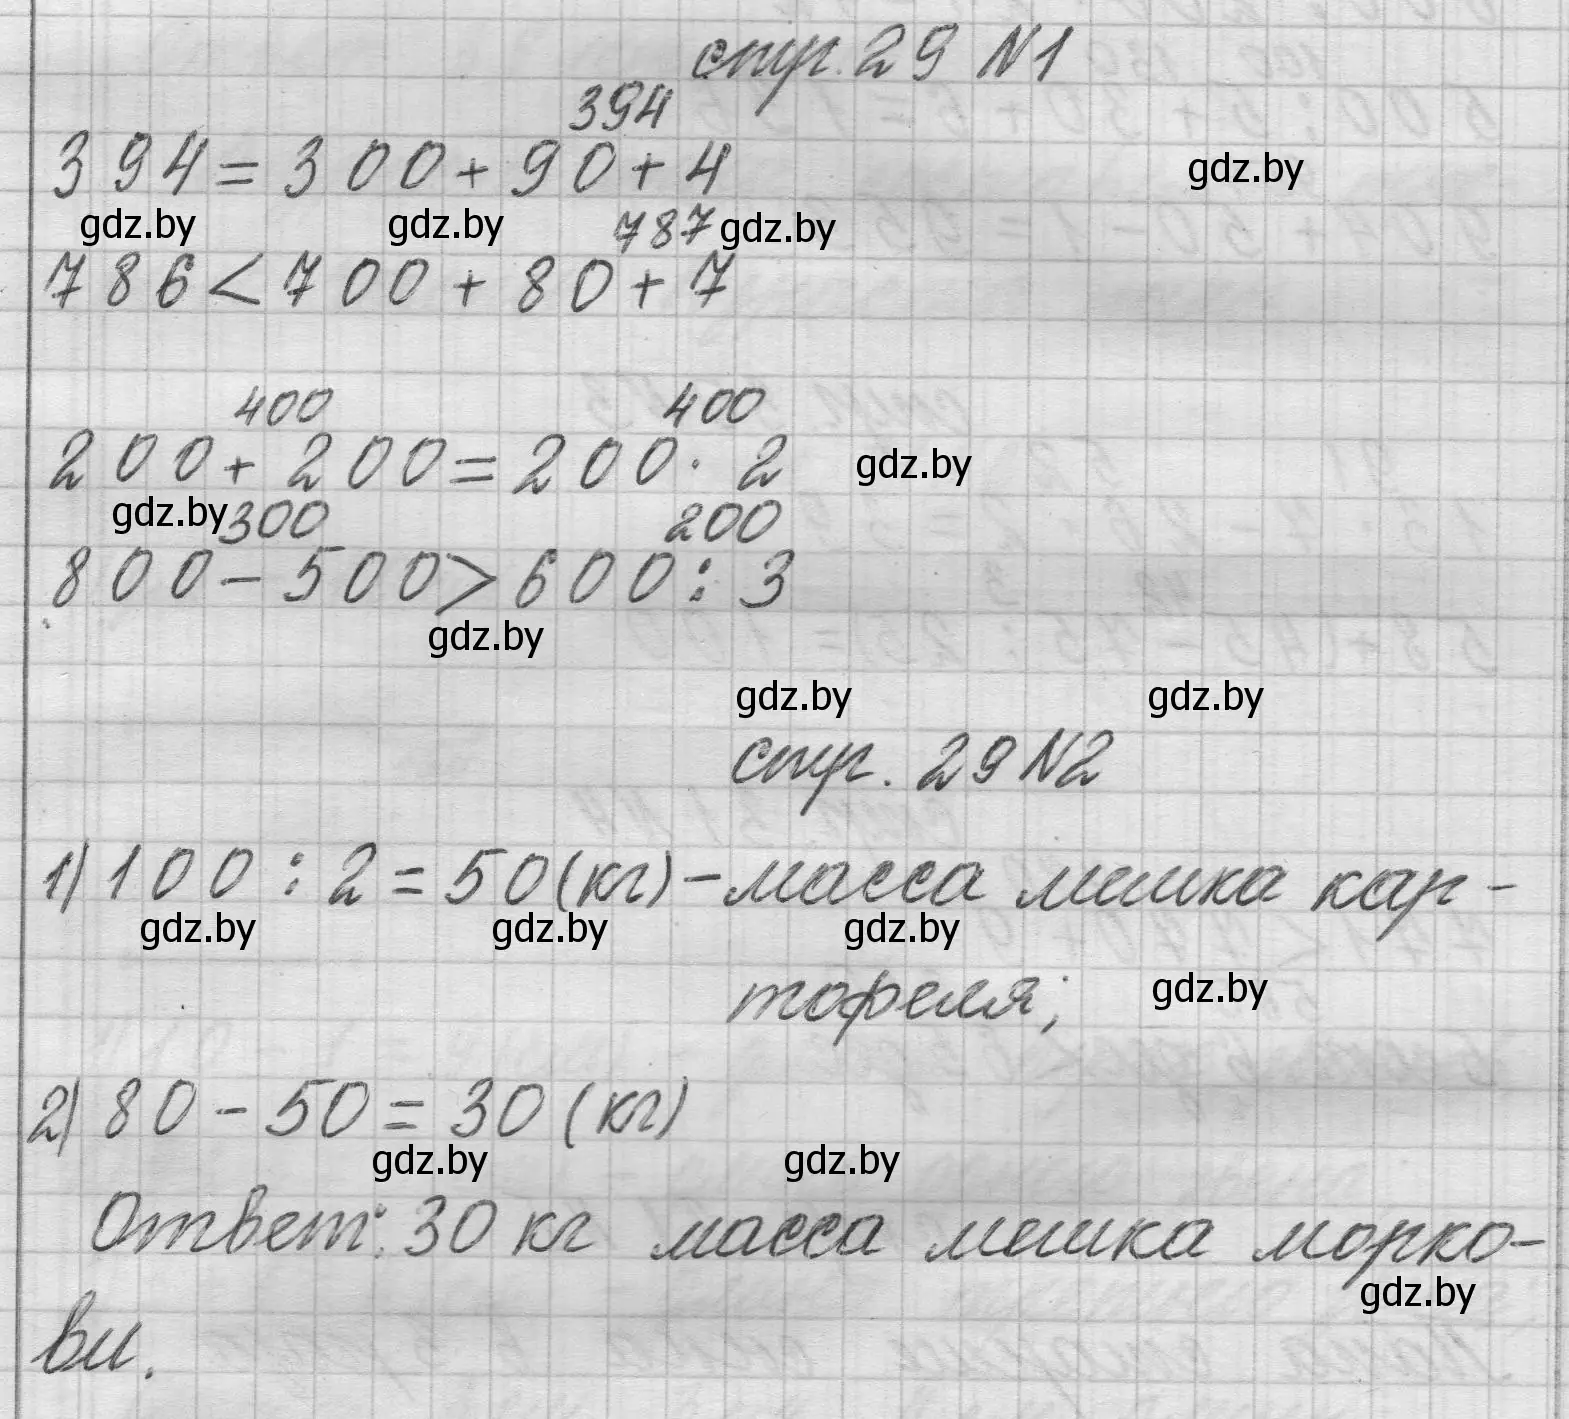 стр. 29 N1
394
394 = 300 + 90 + 4
gdz.by
gdz.by gdz.by 787 gdz.by
786 < 700 + 80 + 7
400 400
200 + 200 = 200 · 2 gdz.by
gdz.by 300 200
800 - 500 > 600 : 3
gdz.by
gdz.by gdz.by
стр. 29 N2
1) 100 : 2 = 50 (кг) - масса мешка кар-
gdz.by gdz.by gdz.by
тофеля; gdz.by
2) 80 - 50 = 30 (кг)
gdz.by gdz.by
Ответ: 30 кг масса мешка морко-
gdz.by
ви.